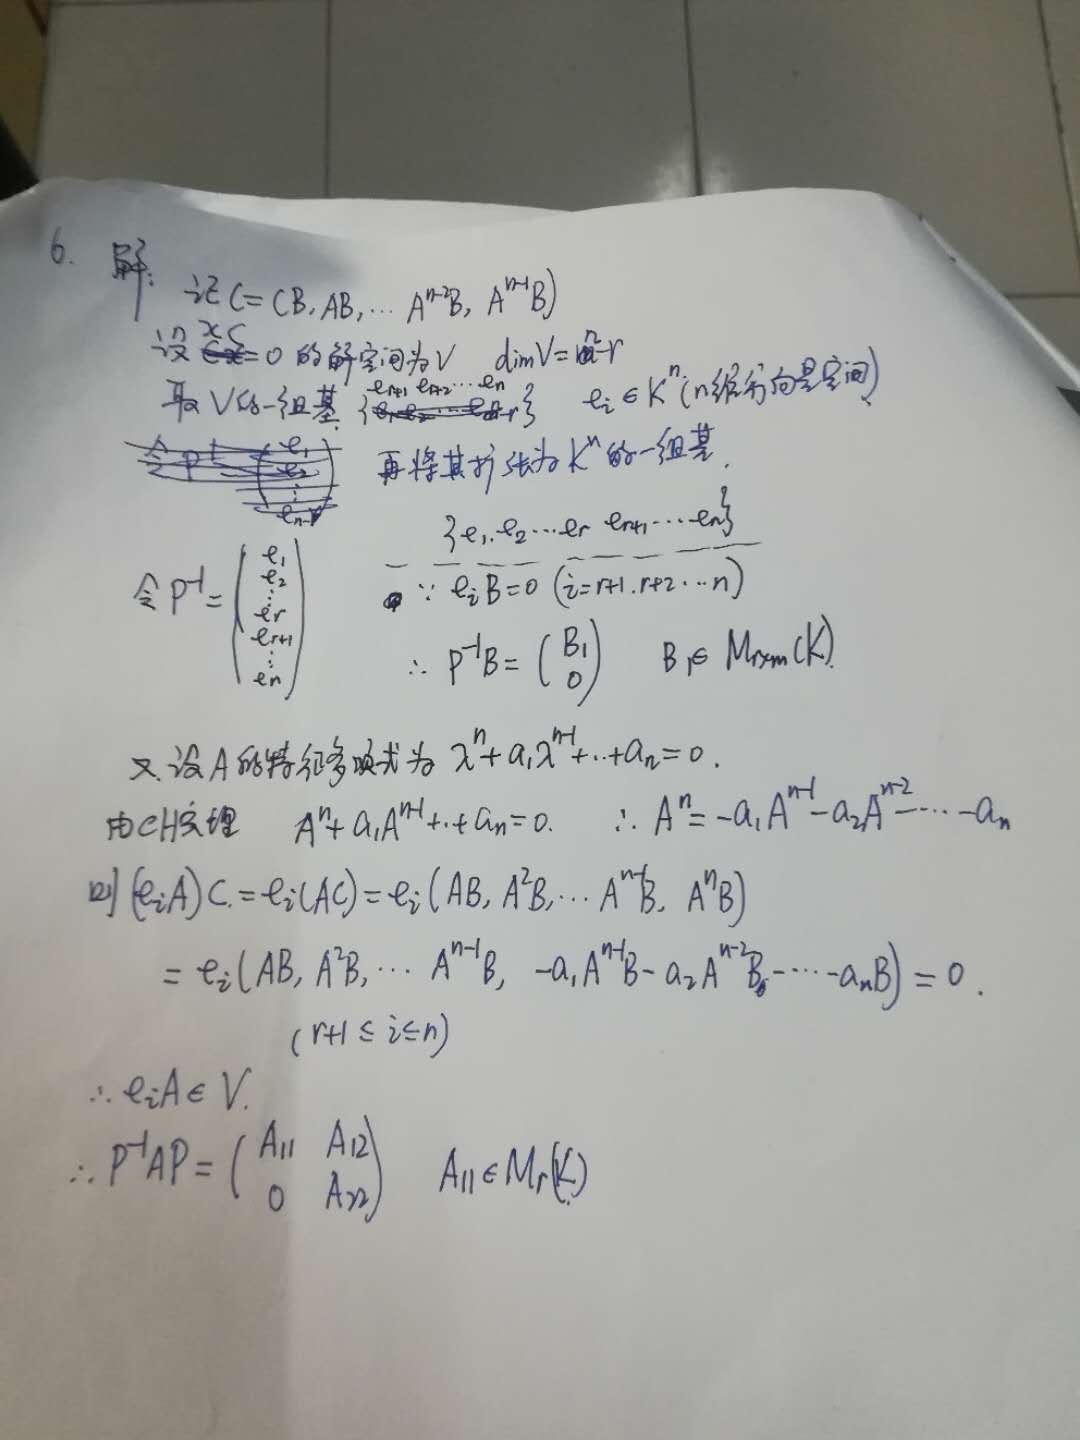 6. 解:
记C=(B, AB, … Aⁿ⁻²B, Aⁿ⁻¹B)
设 xC=0 的解空间为V dimV=n-r
取V的一组基 {eᵣ₊₁ eᵣ₊₂ … eₙ} eᵢ∈Kⁿ(n维行向量空间)
再将其扩张为Kⁿ的一组基.
{e₁, e₂ … eᵣ eᵣ₊₁ … eₙ}
令 P⁻¹= (e₁ e₂ ⋮ eᵣ eᵣ₊₁ ⋮ eₙ)
∵ eᵢB=0 (i=r+1, r+2 … n)
∴ P⁻¹B= (B₁ 0) B₁∈Mᵣₓₘ(K)
又设A的特征多项式为 λⁿ+a₁λⁿ⁻¹+…+aₙ=0.
由CH定理 Aⁿ+a₁Aⁿ⁻¹+…+aₙ=0. ∴ Aⁿ=-a₁Aⁿ⁻¹-a₂Aⁿ⁻²-…-aₙ
则(eᵢA)C=eᵢ(AC)=eᵢ(AB, A²B, … Aⁿ⁻¹B, AⁿB)
=eᵢ(AB, A²B, … Aⁿ⁻¹B, -a₁Aⁿ⁻¹B-a₂Aⁿ⁻²B-…-aₙB)=0.
(r+1≤i≤n)
∴ eᵢA∈V.
∴ P⁻¹AP= (A₁₁ A₁₂ 0 A₂₂) A₁₁∈Mᵣ(K)